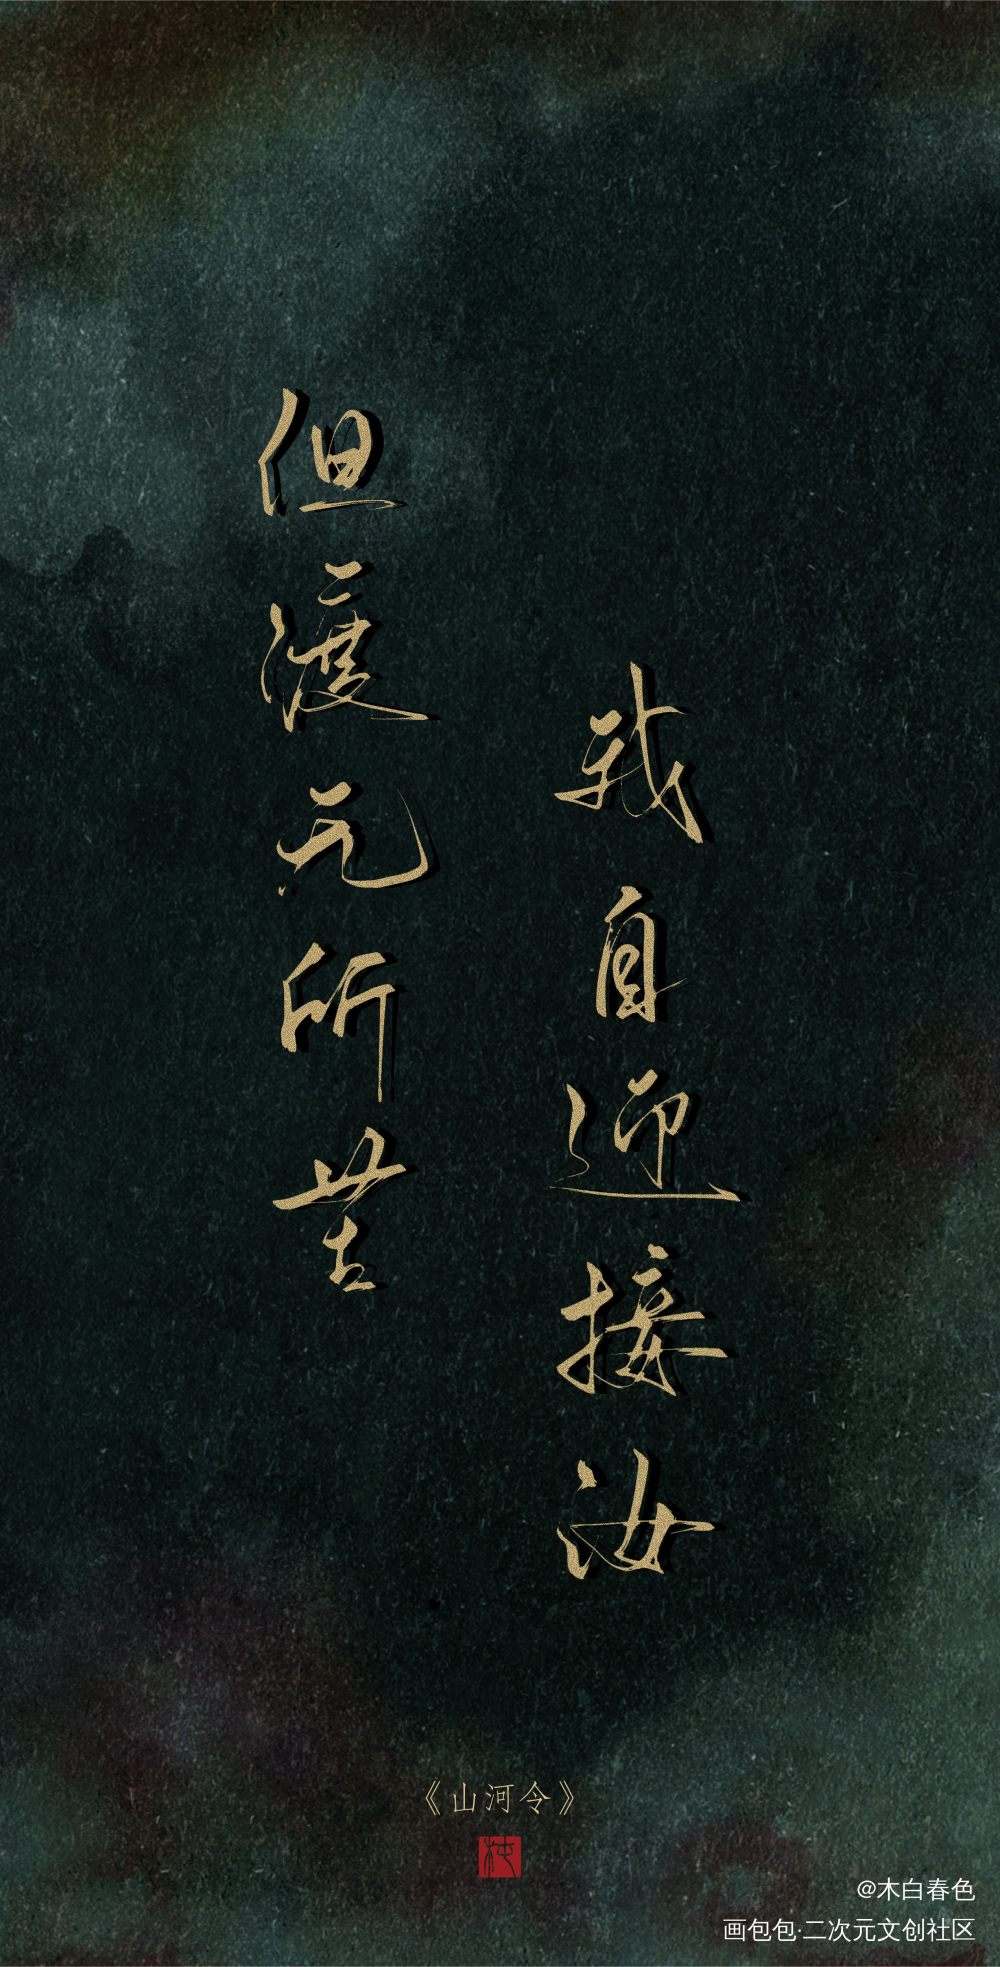 但渡无所苦
我自迎接汝
《山河令》
@木白春色
画包包·二次元文创社区